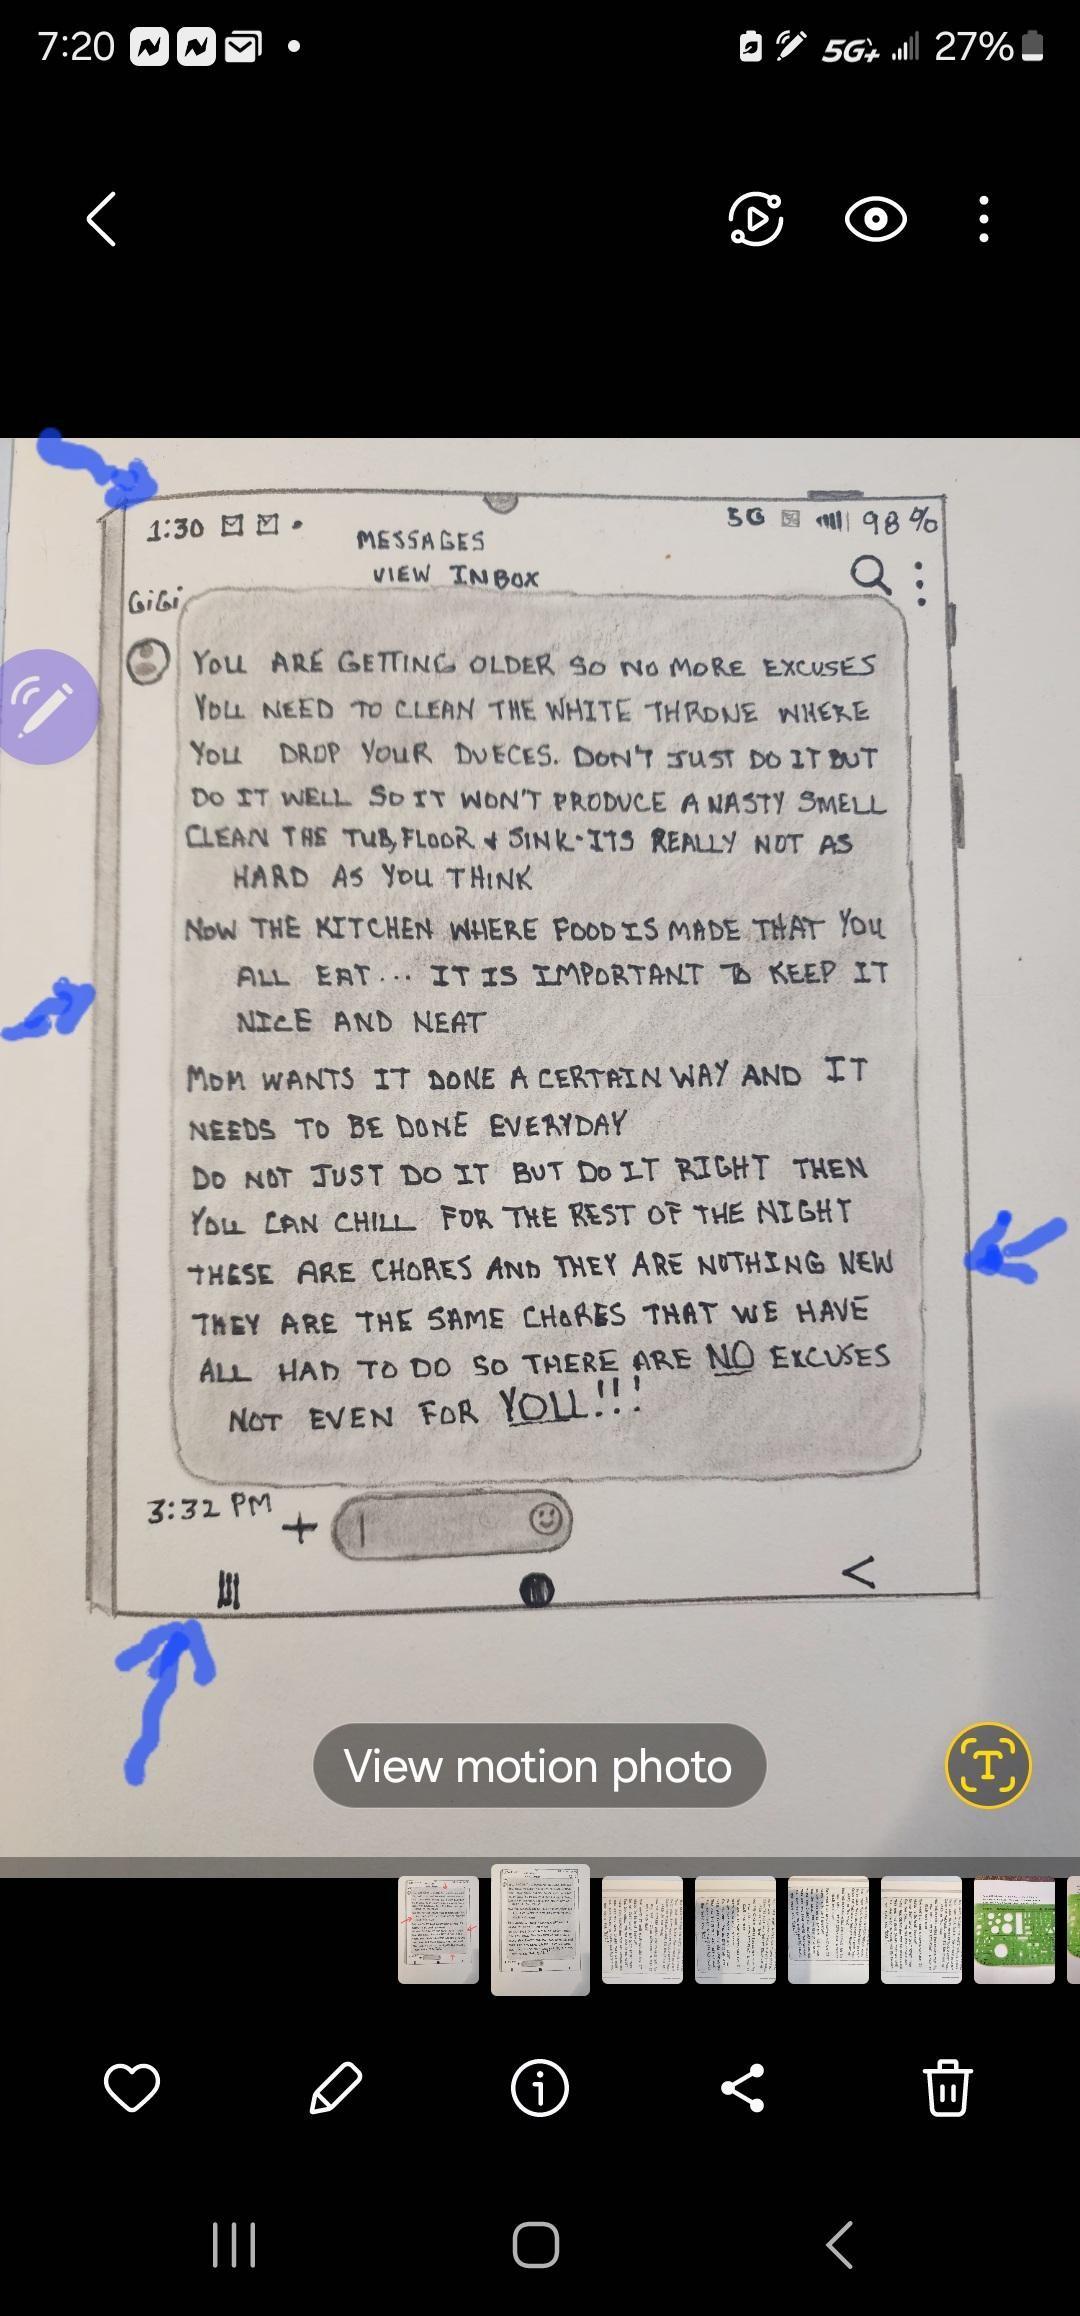 7:20
5G+ 27%
1:30
5G 98%
MESSAGES
VIEW INBOX
GiGi
YOU ARE GETTING OLDER SO NO MORE EXCUSES
YOU NEED TO CLEAN THE WHITE THRONE WHERE
YOU DROP YOUR DUECES. DON'T JUST DO IT BUT
DO IT WELL SO IT WON'T PRODUCE A NASTY SMELL
CLEAN THE TUB, FLOOR & SINK-ITS REALLY NOT AS
HARD AS YOU THINK
NOW THE KITCHEN WHERE FOOD IS MADE THAT YOU
ALL EAT... IT IS IMPORTANT TO KEEP IT
NICE AND NEAT
MOM WANTS IT DONE A CERTAIN WAY AND IT
NEEDS TO BE DONE EVERYDAY
DO NOT JUST DO IT BUT DO IT RIGHT THEN
YOU CAN CHILL FOR THE REST OF THE NIGHT
THESE ARE CHORES AND THEY ARE NOTHING NEW
THEY ARE THE SAME CHORES THAT WE HAVE
ALL HAD TO DO SO THERE ARE NO EXCUSES
NOT EVEN FOR YOU!!!
3:32 PM
View motion photo
T